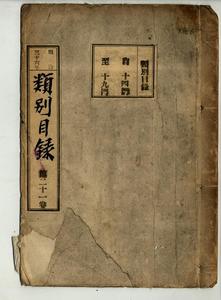 類別目録
自 十四門
至 十九門
類別目録
第二十一巻